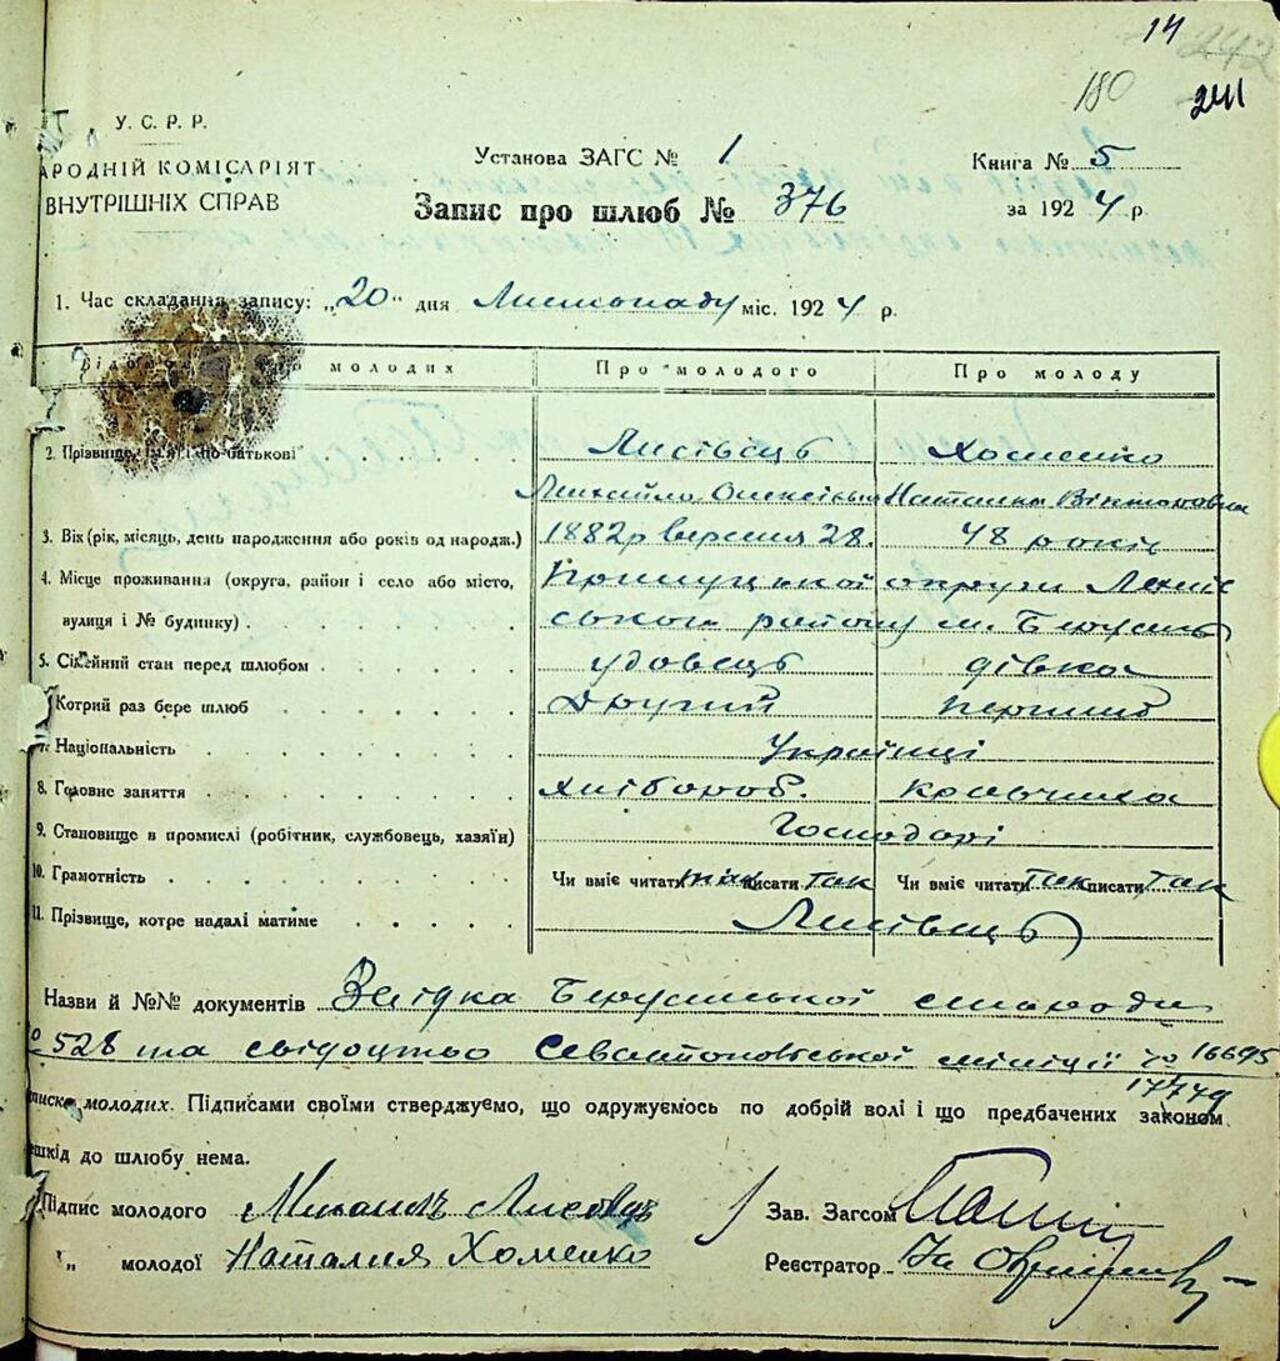 14 242
180 241
У. С. Р. Р.
АРОДНІЙ КОМІСАРІЯТ
ВНУТРІШНІХ СПРАВ
Установа ЗАГС № 1
Книга № 5
Запис про шлюб № 376
за 1924 р
1. Час складання запису: „20" дня Листопаду міс. 1924 р.
молодих Про молодого Про молоду
2. Прізвище, ім'я і по-батькові Лисівець Хоменко
Михайло Олексієвич Наталка Вікторовна
3. Вік (рік, місяць, день народження або років од народж.) 1882 р вересня 28. 48 років
4. Місце проживання (округа, район і село або місто, Прилуцької округи
вулиця і № будинку) ського району м.
5. Сімейний стан перед шлюбом удовець дівка
Котрий раз бере шлюб Другий перший
7. Національність Українці
8. Головне заняття хлібороб. кравчиха
9. Становище в промислі (робітник, службовець, хазяїн) Господарі
10. Грамотність Чи вміє читати так писати так Чи вміє читати так писати так
11. Прізвище, котре надалі матиме Лисівець
Назви й №№ документів
528 та свідоцтво Севастопольської міліції № 16695
17779
писка молодих. Підписами своїми стверджуємо, що одружуємось по добрій волі і що предбачених законом
ешкід до шлюбу нема.
Підпис молодого Михаилъ Лисовець Зав. Загсом
„ молодої Наталия Хоменко Реєстратор